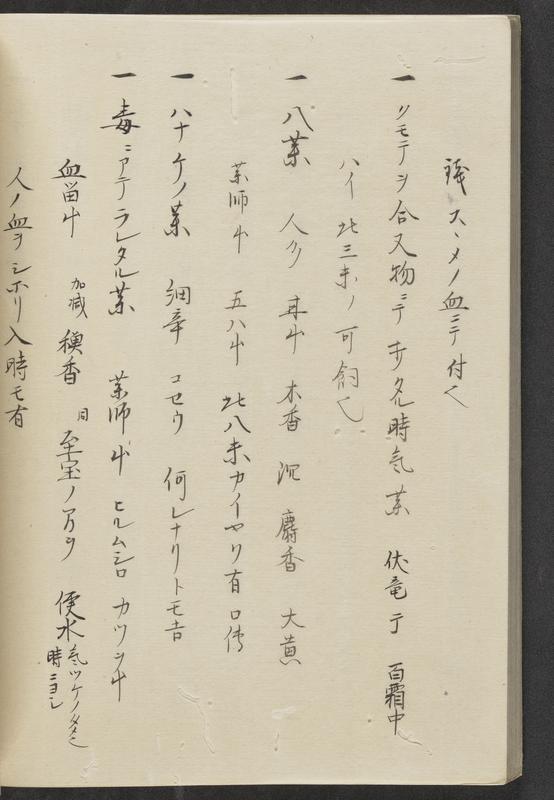 スヽメノ血ニテ付ヘ
一 クモテヲ合又物ニテ タル時気薬 伏竜 百霜中
ハイ 此三味ノ可飼也
一 八薬 人 木香 沉 麝香 大黄
薬師 五八 此八味カイヤウ有口傳
一 ハナケノ薬 細辛 コセウ 何レナリトモ吉
一 毒ニアテラレタル薬 薬師 ヒルムシロ カツラ
血留 加減 穓香 同 至宝ノ 便水 気ツケノタメ也 時ニヨシ
人ノ血ヲシホリ入時モ有